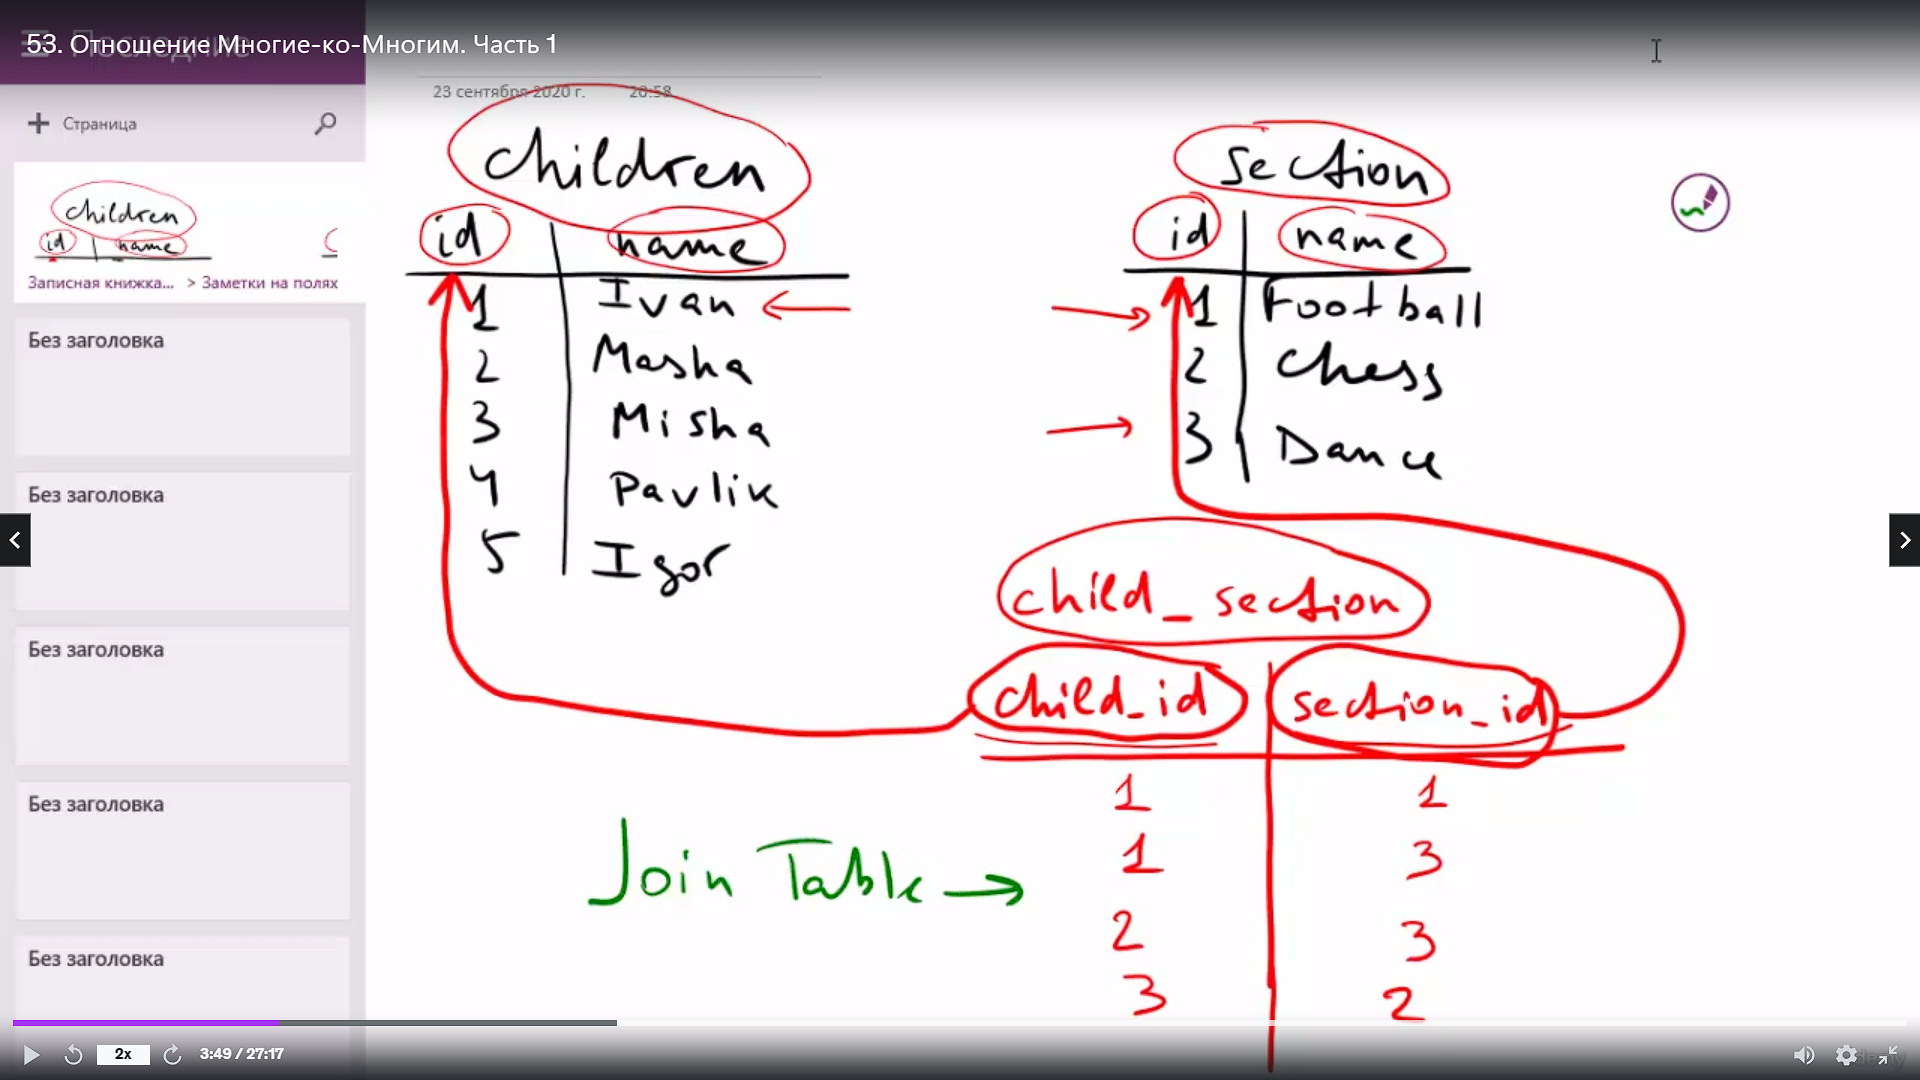 53. Отношение Многие-ко-Многим. Часть 1
Последние
23 сентября 2020 г. 20:58
Страница
children
id name
Записная книжка... > Заметки на полях
Без заголовка
Без заголовка
Без заголовка
Без заголовка
Без заголовка
children
id name
1 Ivan
2 Masha
3 Misha
4 Pavlik
5 Igor
section
id name
1 Football
2 Chess
3 Dance
child_section
child_id section_id
1 1
1 3
2 3
3 2
Join Table →
2x
3:49 / 27:17